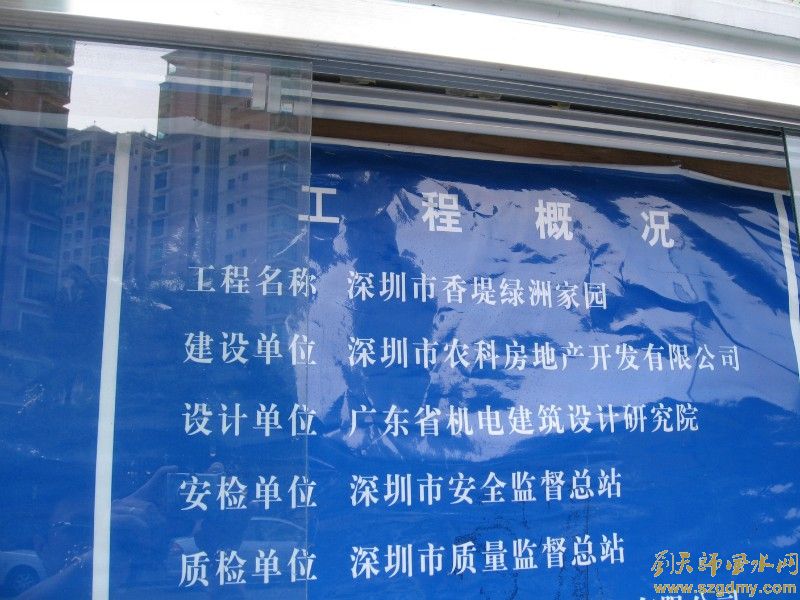 工程概况
工程名称 深圳市香堤绿洲家园
建设单位 深圳市农科房地产开发有限公司
设计单位 广东省机电建筑设计研究院
安检单位 深圳市安全监督总站
质检单位 深圳市质量监督总站
刘天師風水网
www.szgdmy.com